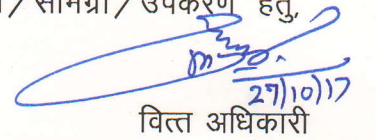 / सामग्री / उपकरण हेतु,
27/10/17
वित्त अधिकारी